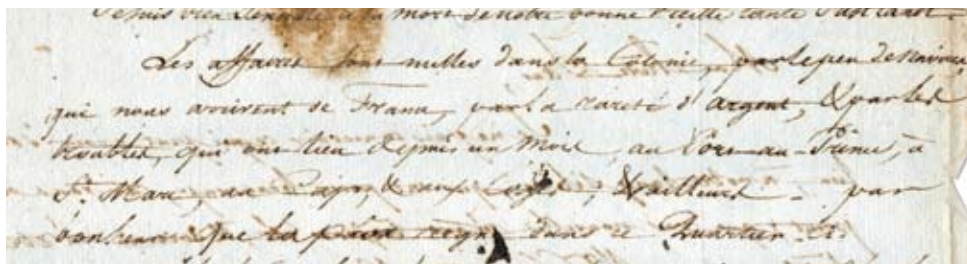 Je suis bien sensible à la mort de notre bonne vieille tante
Les affaires sont nulles dans la Colonie, par le peu de navires
qui nous arrivent de France, par la rareté d'argent, & par les
troubles, qui ont lieu depuis un Mois, au Port-au-Prince, à
St. Marc, au Cap, & aux Cayes, & ailleurs. par
bonheur que la paix règne dans ce Quartier-ci.